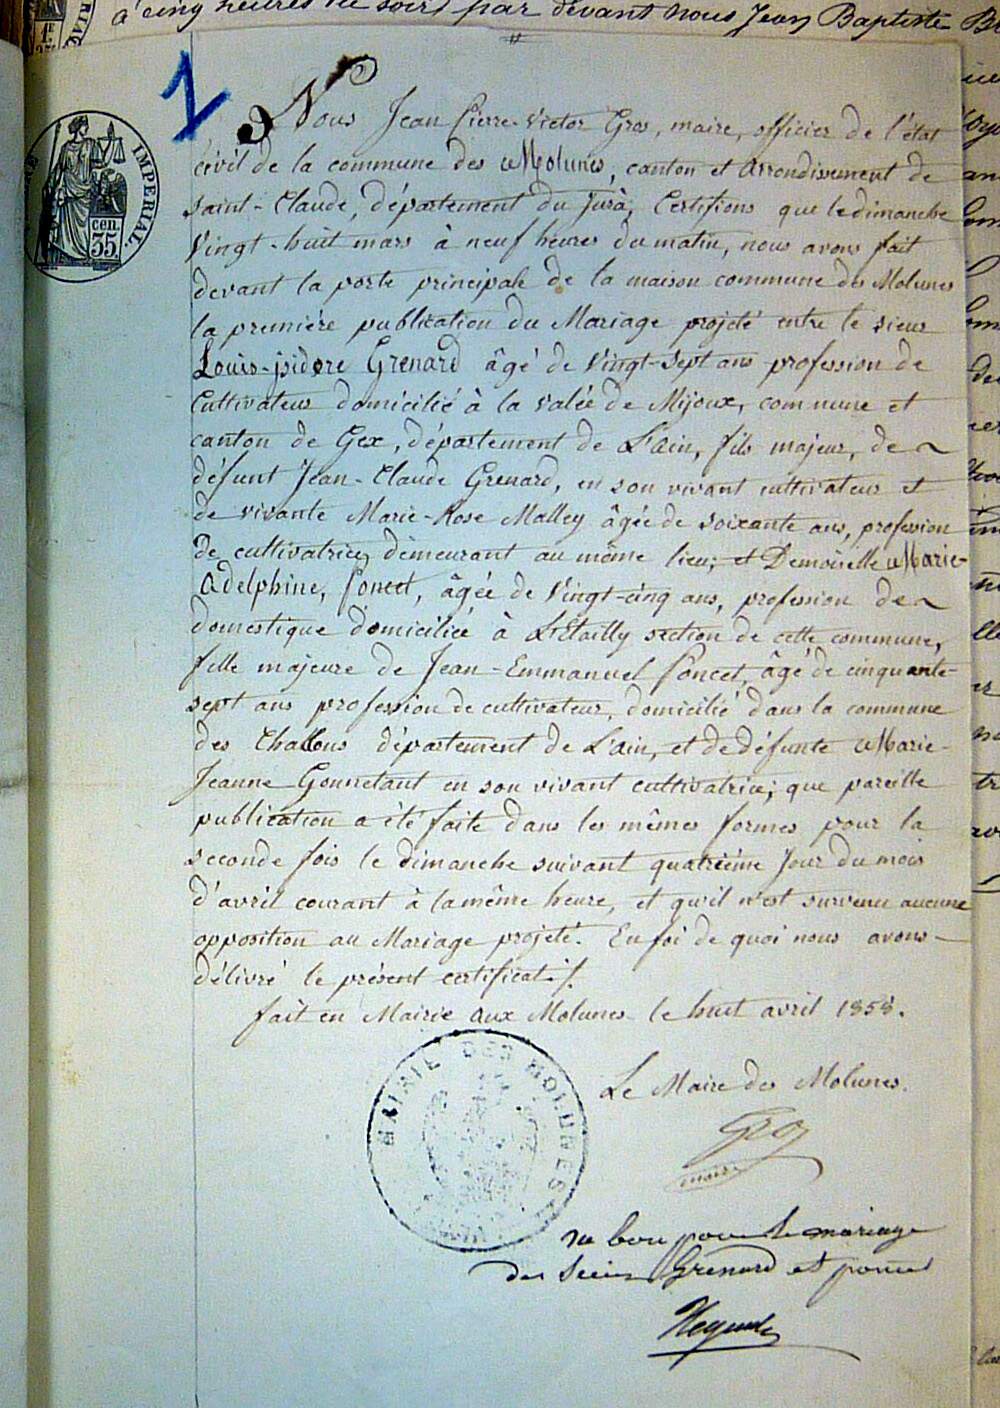 à cinq heures du soir par devant nous Jean Baptiste
1
IMPERIAL
cen.
35.
Nous Jean Pierre Victor Gros, maire, officier de l'état
civil de la commune des Molunes, canton et Arrondissement de
Saint-Claude, département du Jura, Certifions que le dimanche
Vingt-huit mars à neuf heures du matin, nous avons fait
devant la porte principale de la maison commune des Molunes
la première publication du Mariage projeté entre le sieur
Louis-isidore Grenard âgé de Vingt-sept ans profession de
Cultivateur domicilié à la valée de Mijoux, commune et
canton de Gex, département de L'ain, fils majeur, de
défunt Jean-Claude Grenard, en son vivant cultivateur et
de vivante Marie-Rose Malley âgée de soixante ans, profession
de cultivatrice, demeurant au même lieu; et Demoiselle Marie-
Adelphine, Poncet, âgée de Vingt-cinq ans, profession de
domestique domiciliée à L'Etailly section de cette commune,
fille majeure de Jean-Emmanuel Poncet, âgé de cinquante-
sept ans profession de cultivateur, domicilié dans la commune
des Challons département de L'ain, et de défunte Marie-
Jeanne Gonnetant en son vivant cultivatrice; que pareille
publication a été faite dans les mêmes formes pour la
seconde fois le dimanche suivant quatrième Jour du mois
d'avril courant à la même heure, et qu'il n'est survenu aucune
opposition au Mariage projeté. En foi de quoi nous avons
délivré le présent certificat ./.
fait en Mairie aux Molunes le huit avril 1858.
MAIRIE DES MOLUNES
Le Maire des Molunes.
Gros
maire
Vu bon pour le mariage
des sieurs Grenard et poncet